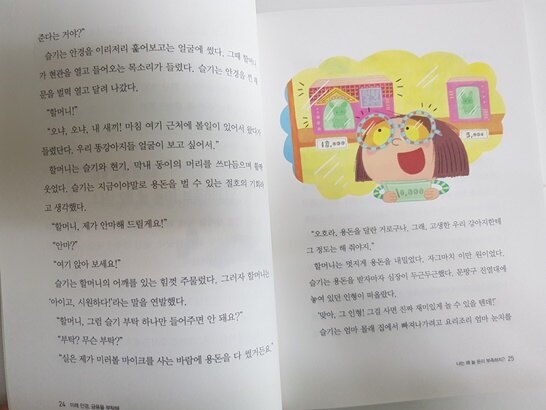 준다는 거야?"
슬기는 안경을 이리저리 훑어보고는 얼굴에 썼다. 그때 할머니
가 현관을 열고 들어오는 목소리가 들렸다. 슬기는 안경을 낀 채
문을 벌컥 열고 달려 나갔다.
"할머니!"
"오냐, 오냐, 내 새끼! 마침 여기 근처에 볼일이 있어서 왔다가
들렀단다. 우리 똥강아지들 얼굴이 보고 싶어서."
할머니는 슬기와 현기, 막내 동이의 머리를 쓰다듬으며
웃었다. 슬기는 지금이야말로 용돈을 벌 수 있는 절호의 기회라
고 생각했다.
"할머니, 제가 안마해 드릴게요!"
"안마?"
"여기 앉아 보세요!"
슬기는 할머니의 어깨를 있는 힘껏 주물렀다. 그러자 할머니는
'아이고, 시원하다!'라는 말을 연발했다.
"할머니, 그럼 슬기 부탁 하나만 들어주면 안 돼요?"
"부탁? 무슨 부탁?"
"실은 제가 미러볼 마이크를 사는 바람에 용돈을 다 썼거든요."
24 미래 인경, 금융을 부탁해
18,000
5,000
10,000
"오호라, 용돈을 달란 거로구나. 그래, 고생한 우리 강아지한테
그 정도는 해 줘야지."
할머니는 멋지게 용돈을 내밀었다. 자그마치 만 원이었다.
슬기는 용돈을 받자마자 심장이 두근두근했다. 문방구 진열대에
놓여 있던 인형이 떠올랐다.
'맞아, 그 인형! 그걸 사면 진짜 재미있게 놀 수 있을 텐데!'
슬기는 엄마 몰래 집에서 빠져나가려고 요리조리 엄마 눈치를
나는 왜 늘 돈이 부족하지? 25